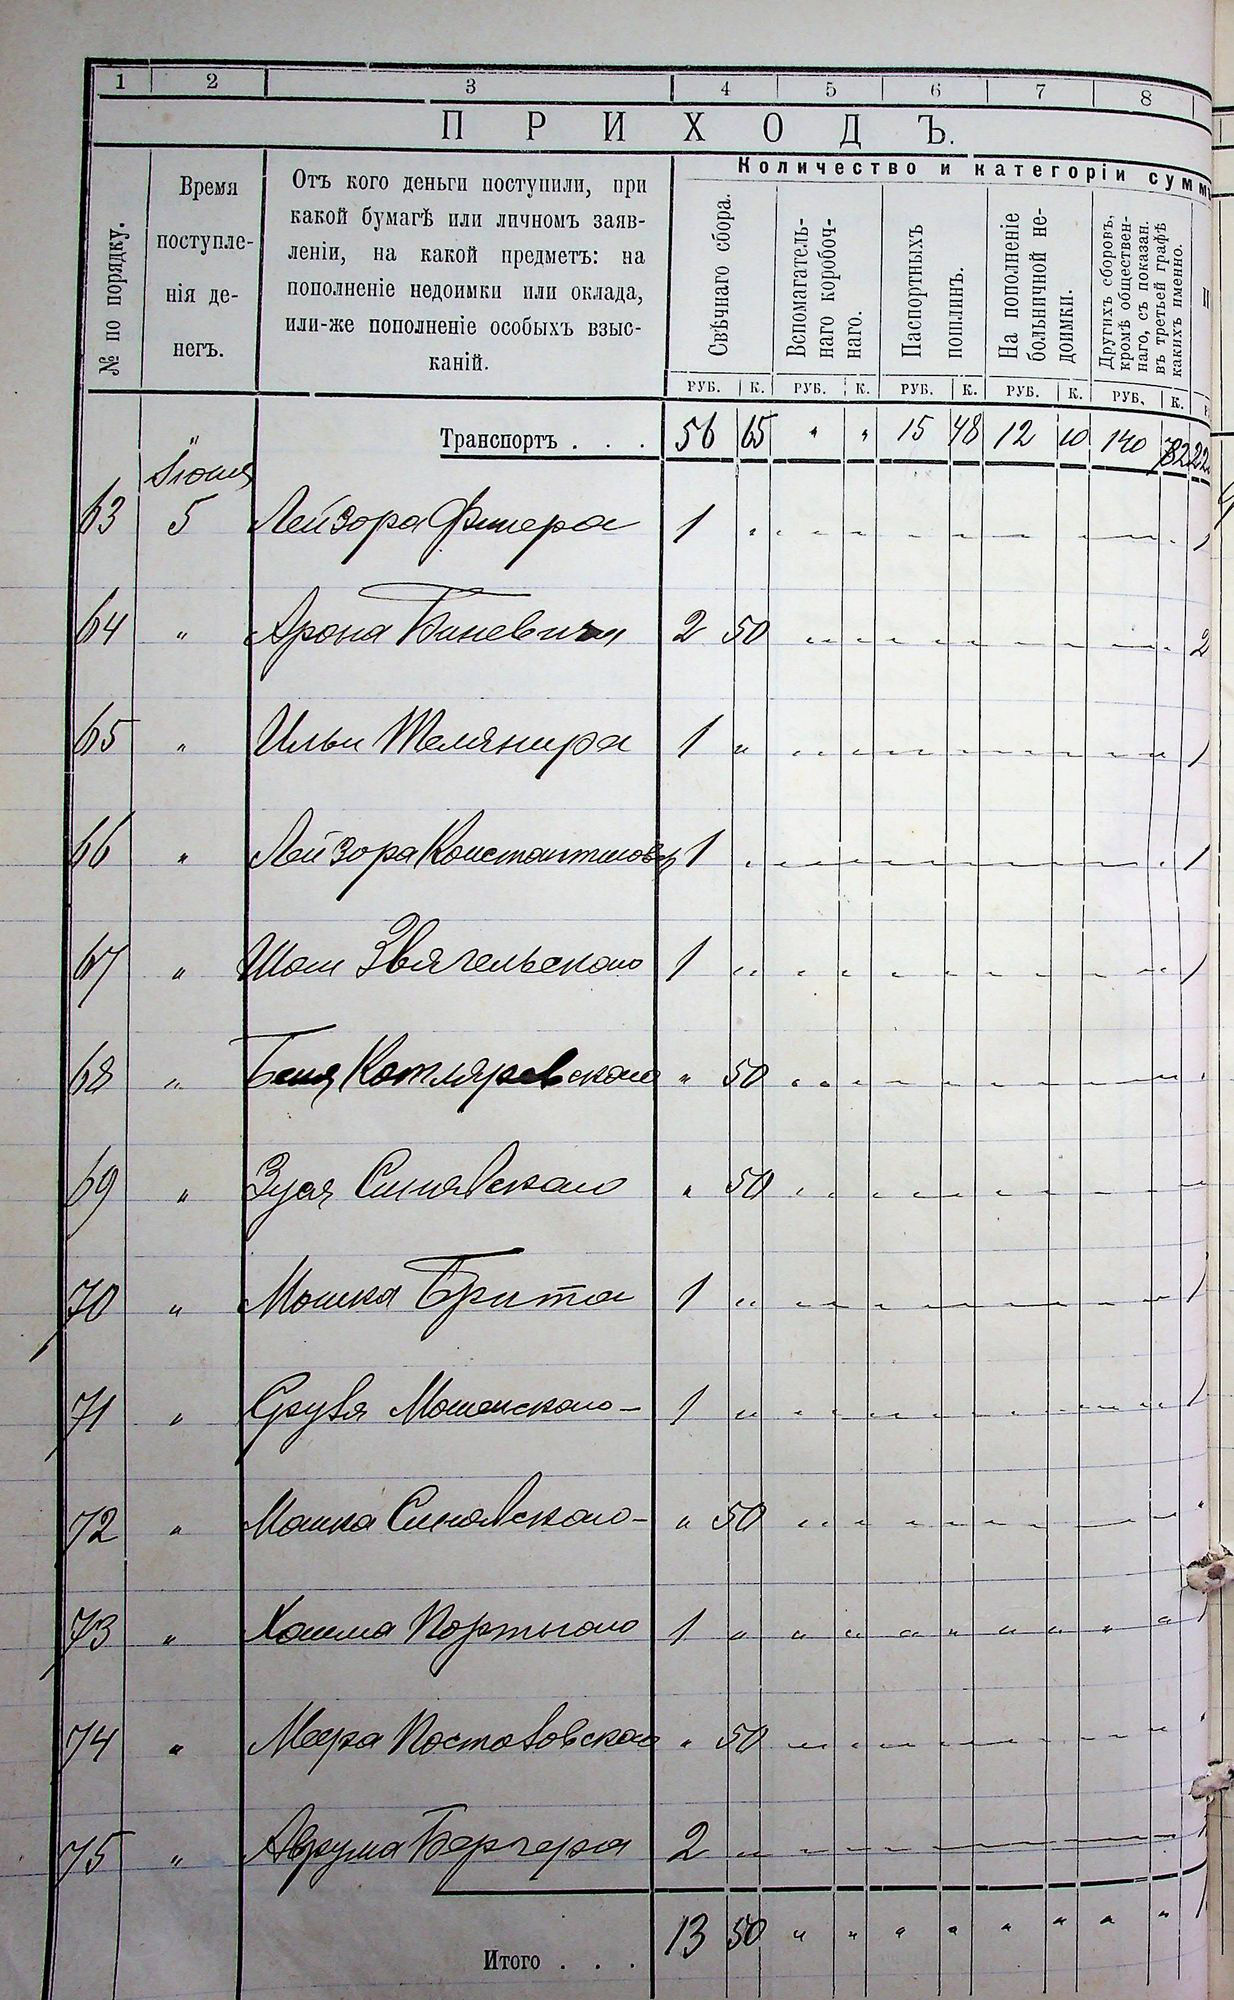 1 2 3 4 5 6 7 8
ПРИХОДЪ.
№ по порядку.
Время
поступле-
нія де-
негъ.
Отъ кого деньги поступили, при
какой бумагѣ или личномъ заяв-
леніи, на какой предметъ: на
пополненіе недоимки или оклада,
или-же пополненіе особыхъ взыс-
каній.
Количество и категоріи сумм
Свѣчнаго сбора.
Вспомагатель-
наго коробоч-
наго.
Паспортныхъ
поплинъ.
На пополненіе
больничной не-
доимки.
Другихъ сборовъ,
кромѣ обществен-
наго, съ показан.
въ третьей графѣ
какихъ именно.
РУБ. К. РУБ. К. РУБ. К. РУБ. К. РУБ. К.
Транспортъ . . . 56 65 " " 15 48 12 10 140 82
Іюня
63 5 Лейзора Фишера 1 "
64 " Арона Биневича 2 50 2
65 " Ильи Телянера 1 " 1
66 " Лейзора Константиновск 1 " 1
67 " Шои Звягельскаго 1 " 1
68 " Беня Котляревскаго " 50
69 " Зуся Синявскаго " 50
70 " Мошка Брита 1 " 1
71 " Срувя Мошенскаго 1 " 1
72 " Мошка Синявскаго " 50
73 " Хаима Портнаго 1 " " " " " " " " "
74 " Меера Постововскаго " 50
75 " Аврума Бергера 2 "
Итого . . . 13 50 " " " " " " " "